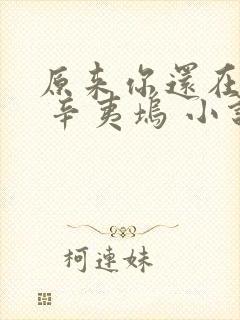 原来你還在
辛夷塢 小
柯連妹